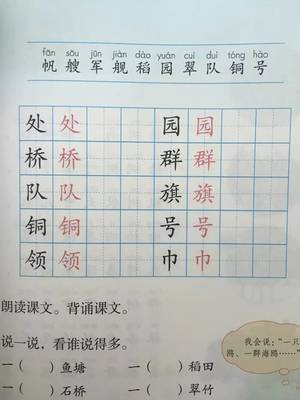 fān sōu jūn jiàn dào yuán cuì duì tóng hào
帆 艘 军 舰 稻 园 翠 队 铜 号
处 处 园 园
桥 桥 群 群
队 队 旗 旗
铜 铜 号 号
领 领 巾 巾
朗读课文。背诵课文。
说一说，看谁说得多。
我会说：“一只
鸥、一群海鸥……”
一（ ）鱼塘 一（ ）稻田
一（ ）石桥 一（ ）翠竹